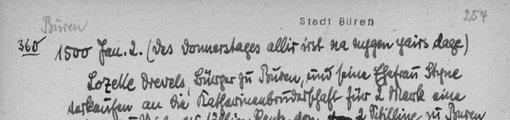 Büren Stadt Büren 254
360 1500 Jan. 2. (des donnerstages allir irst na nygen jairs dage)
Lozelle Drevels, Bürger zu Buren, und seine Ehefrau Styne
verkaufen an die Katharinenbruderschaft für 2 Mark eine
2 Schilling zu Buren